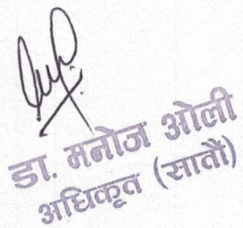 डा. मनोज ओली
अधिकृत (सातौं)